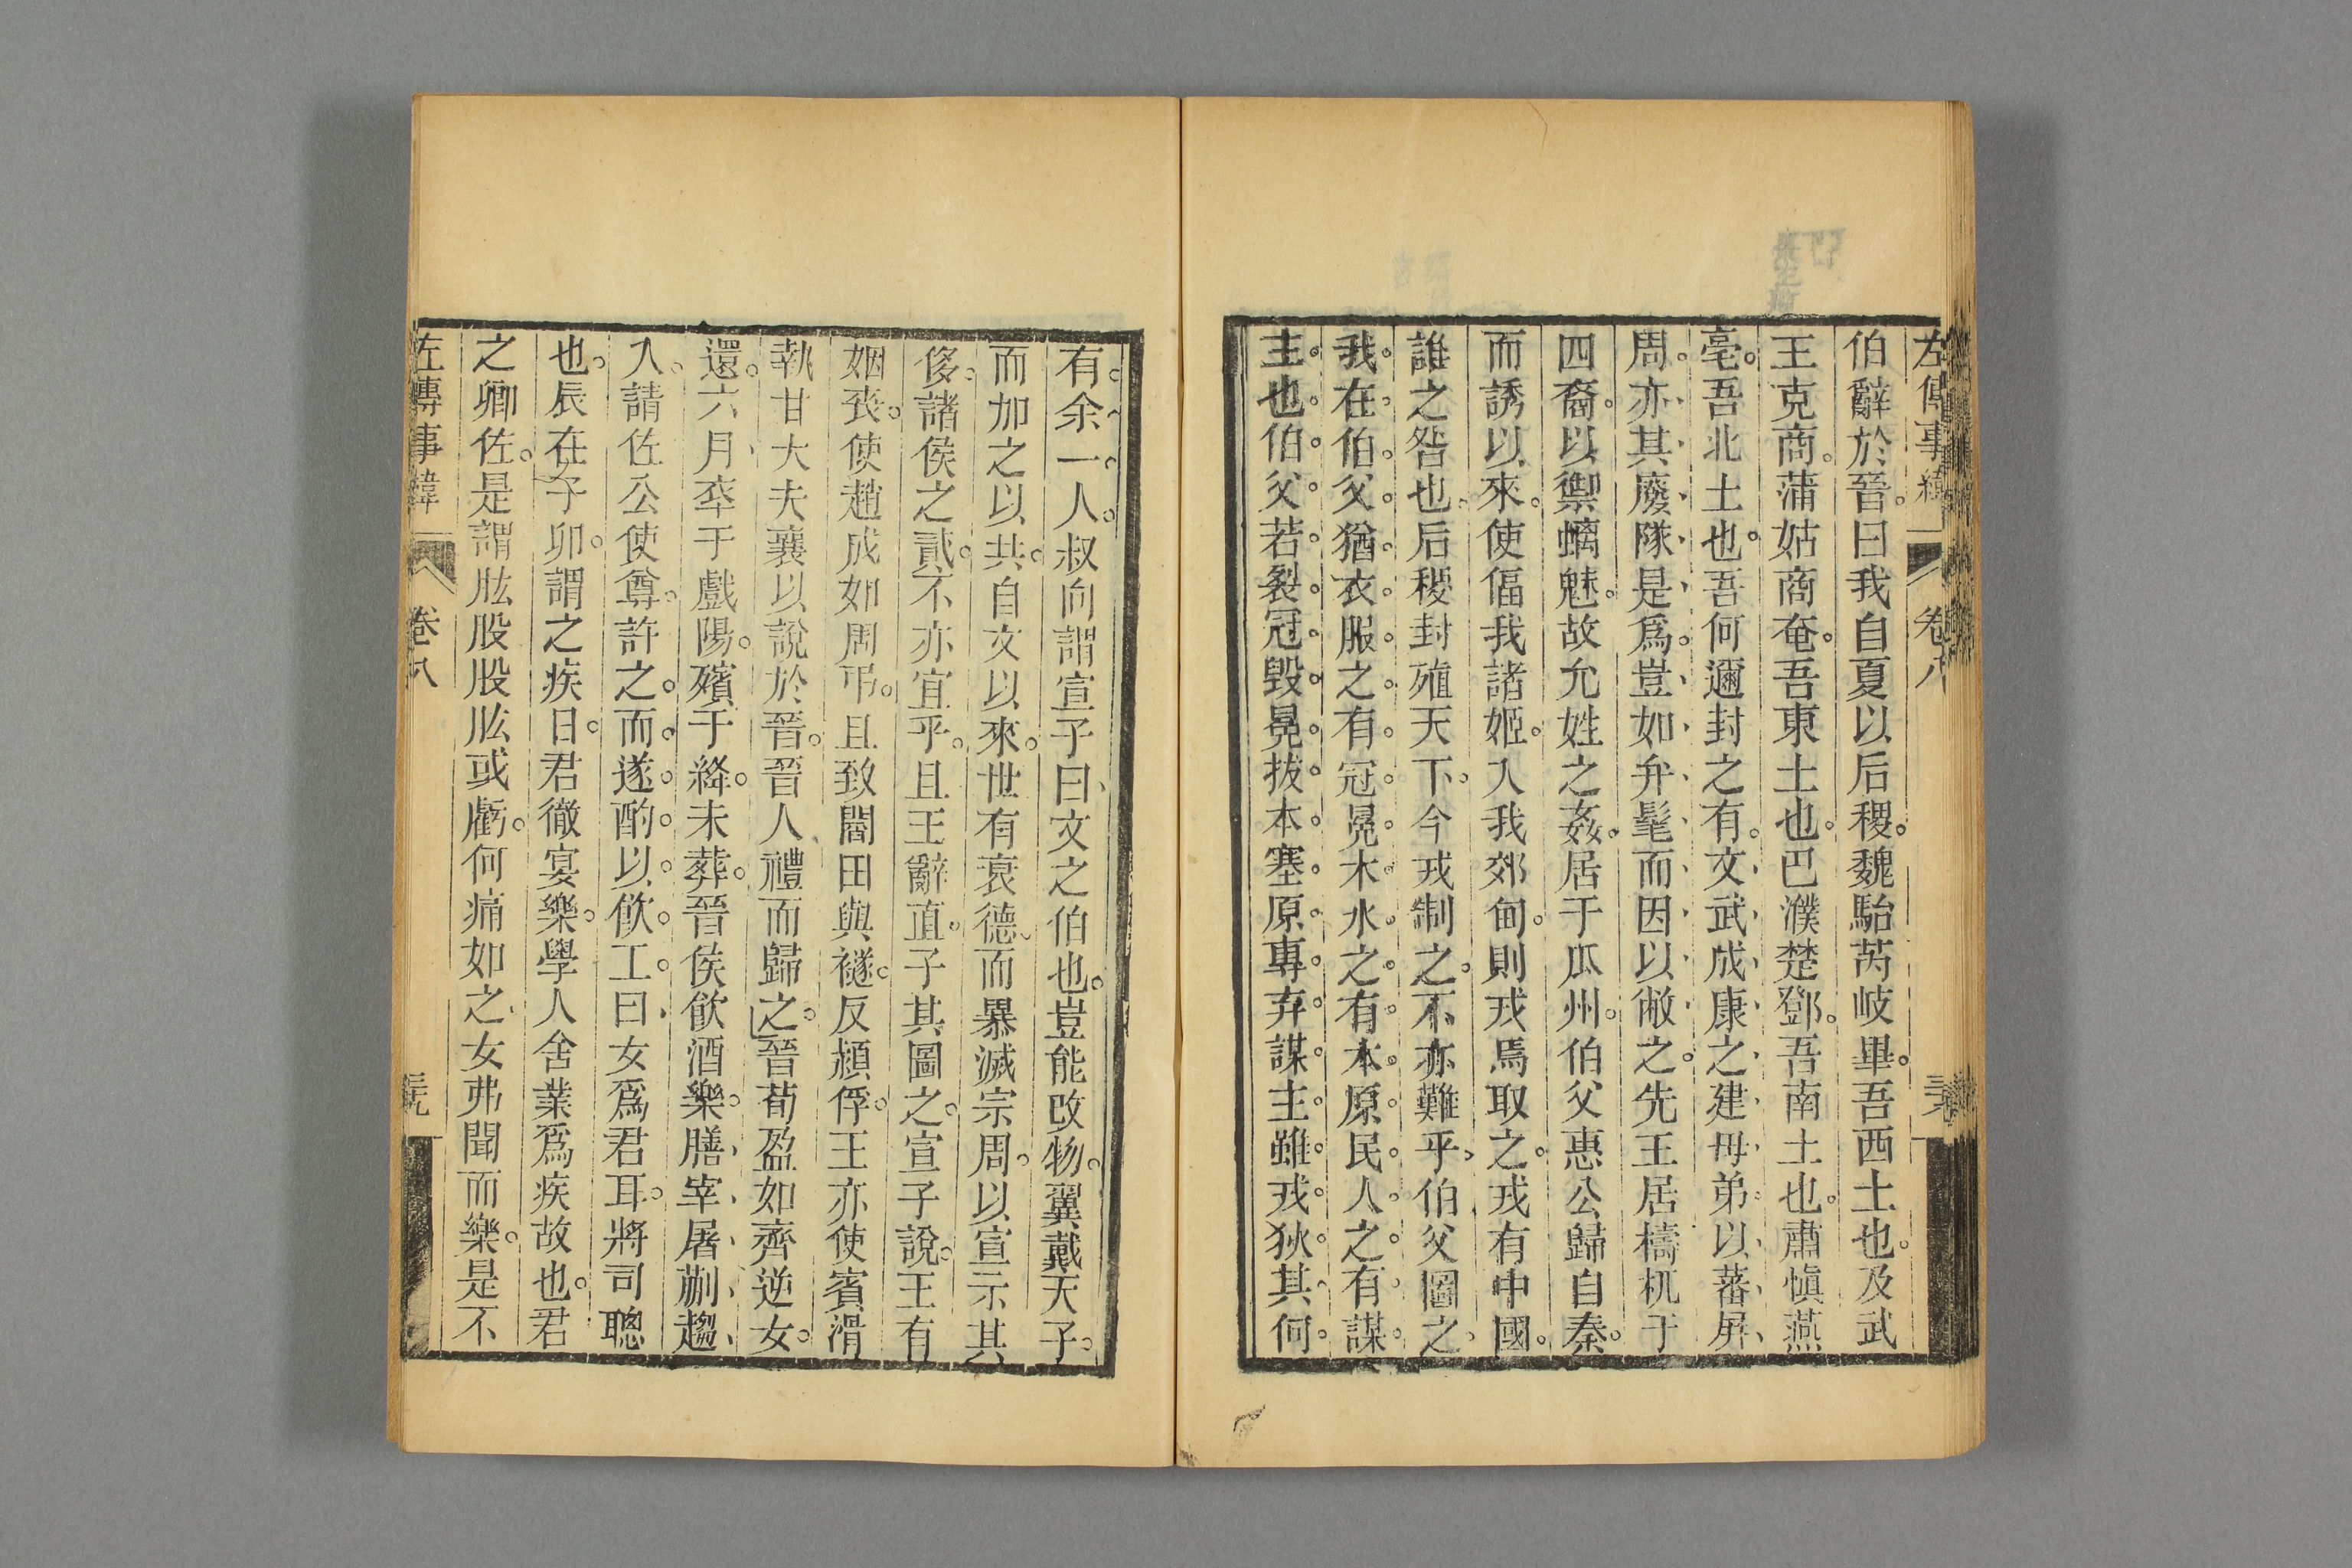 左傳事緯 卷八
伯辭於晉曰我自夏以后稷魏駘芮岐畢吾西土也及武
王克商蒲姑商奄吾東土也巴濮楚鄧吾南土也肅愼燕
亳吾北土也吾何邇封之有文武成康之建毋弟以蕃屏
周亦其廢隊是爲豈如弁髦而因以敝之先王居檮杌于
四裔以禦螭魅故允姓之姦居于瓜州伯父惠公歸自秦
而誘以來使偪我諸姬入我郊甸則戎焉取之戎有中國
誰之咎也后稷封殖天下今戎制之不亦難乎伯父圖之
我在伯父猶衣服之有冠冕木水之有本原民人之有謀
主也伯父若裂冠毀冕拔本塞原專弃謀主雖戎狄其何
有余一人叔向謂宣子曰文之伯也豈能改物翼戴天子
而加之以共自文以來世有衰德而暴滅宗周以宣示其
侈諸侯之貳不亦宜乎且王辭直子其圖之宣子說王有
姻䘮使趙成如周弔且致閻田與襚反潁俘王亦使賓滑
執甘大夫襄以說於晉晉人禮而歸之晉荀盈如齊逆女
還六月卒于戲陽殯于絳未葬晉侯飮酒樂膳宰屠蒯趨
入請佐公使尊許之而遂酌以飮工曰女爲君耳將司聰
也辰在子卯謂之疾日君徹宴樂學人舍業爲疾故也君
之卿佐是謂肱股股肱或虧何痛如之女弗聞而樂是不
左傳事緯 卷八 元